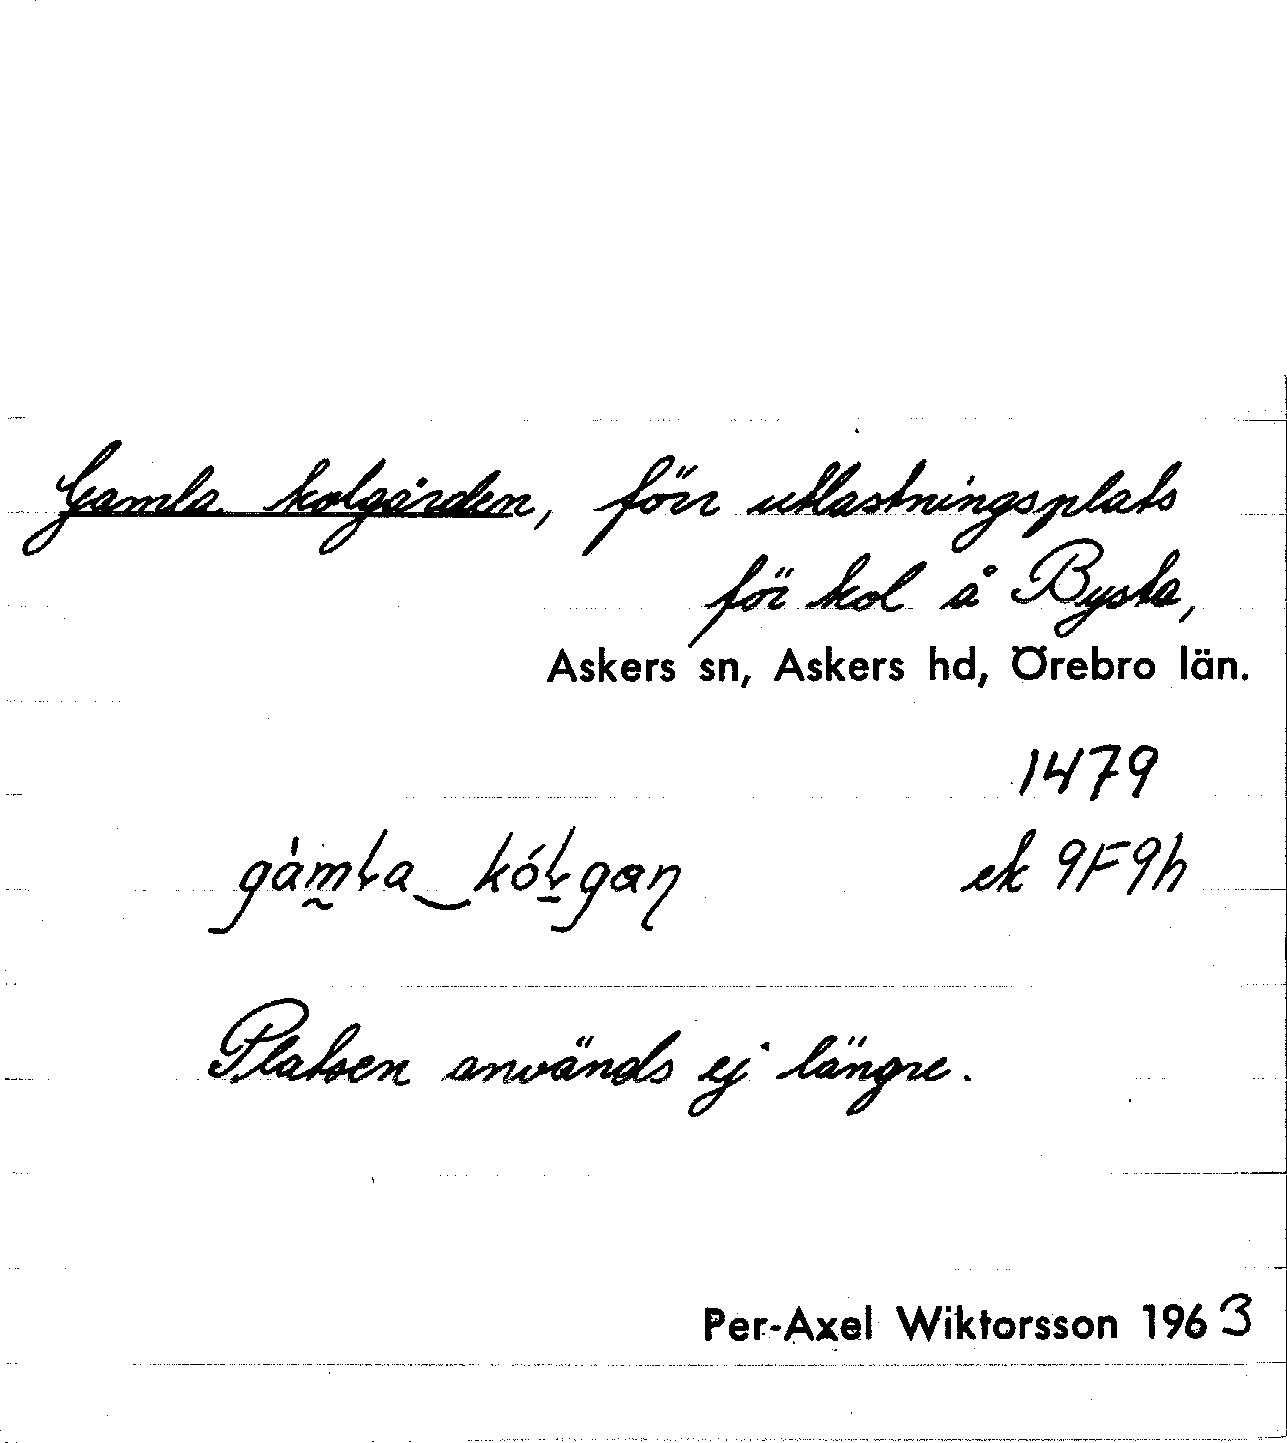 Gamla kolgården, förr utlastningsplats
för kol å Bysta,
Askers sn, Askers hd, Örebro län.
1479
ek 9F9h
Platsen används ej längre.
Per-Axel Wiktorsson 1963